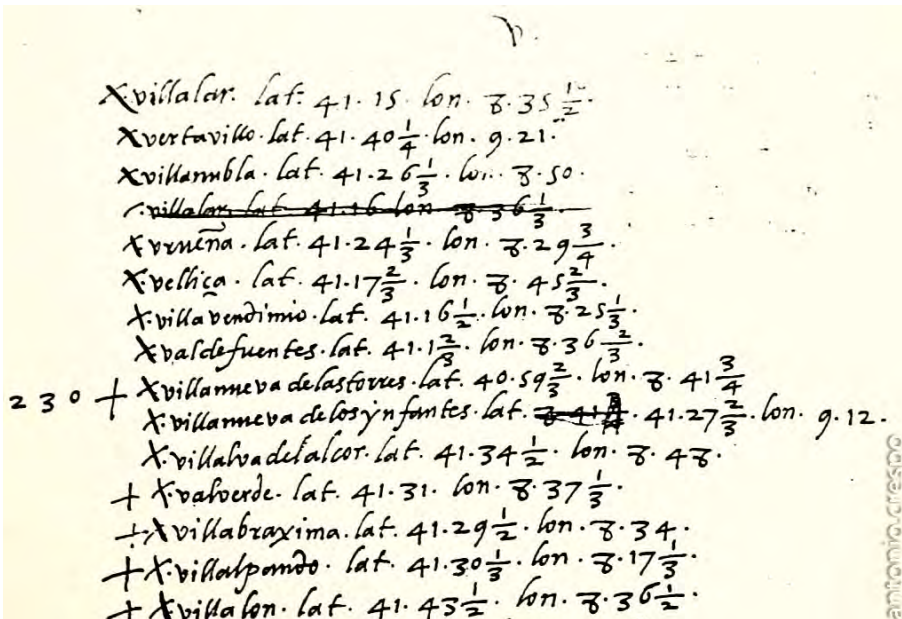 v.
X villalar. lat. 41. 15. lon. 8. 35 1/2.
X vertavillo. lat. 41. 40 1/4. lon. 9. 21.
X villanubla. lat. 41. 26 1/3. lon. 8. 50.
villalar. lat. 41. 16 lon 8. 36 1/3.
X vrueña. lat. 41. 24 1/3. lon. 8. 29 3/4.
X velliça. lat. 41. 17 2/3. lon. 8. 45 2/3.
X villavendimio. lat. 41. 16 1/2. lon. 8. 25 1/3.
X valdefuentes. lat. 41. 1 2/3. lon. 8. 36 2/3.
230 + X villanueva delastorres. lat. 40. 59 2/3. lon. 8. 41 3/4
X villanueva delosynfantes. lat. 41. 27 2/3. lon. 9. 12.
X villalvadelalcor. lat. 41. 34 1/2. lon. 8. 48.
+ X valverde. lat. 41. 31. lon. 8. 37 1/3.
+ X villabraxima. lat. 41. 29 1/2. lon. 8. 34.
+ X villalpando. lat. 41. 30 1/3. lon. 8. 17 1/3.
+ X villalon. lat. 41. 43 1/2. lon. 8. 36 1/2.
antonio crespo